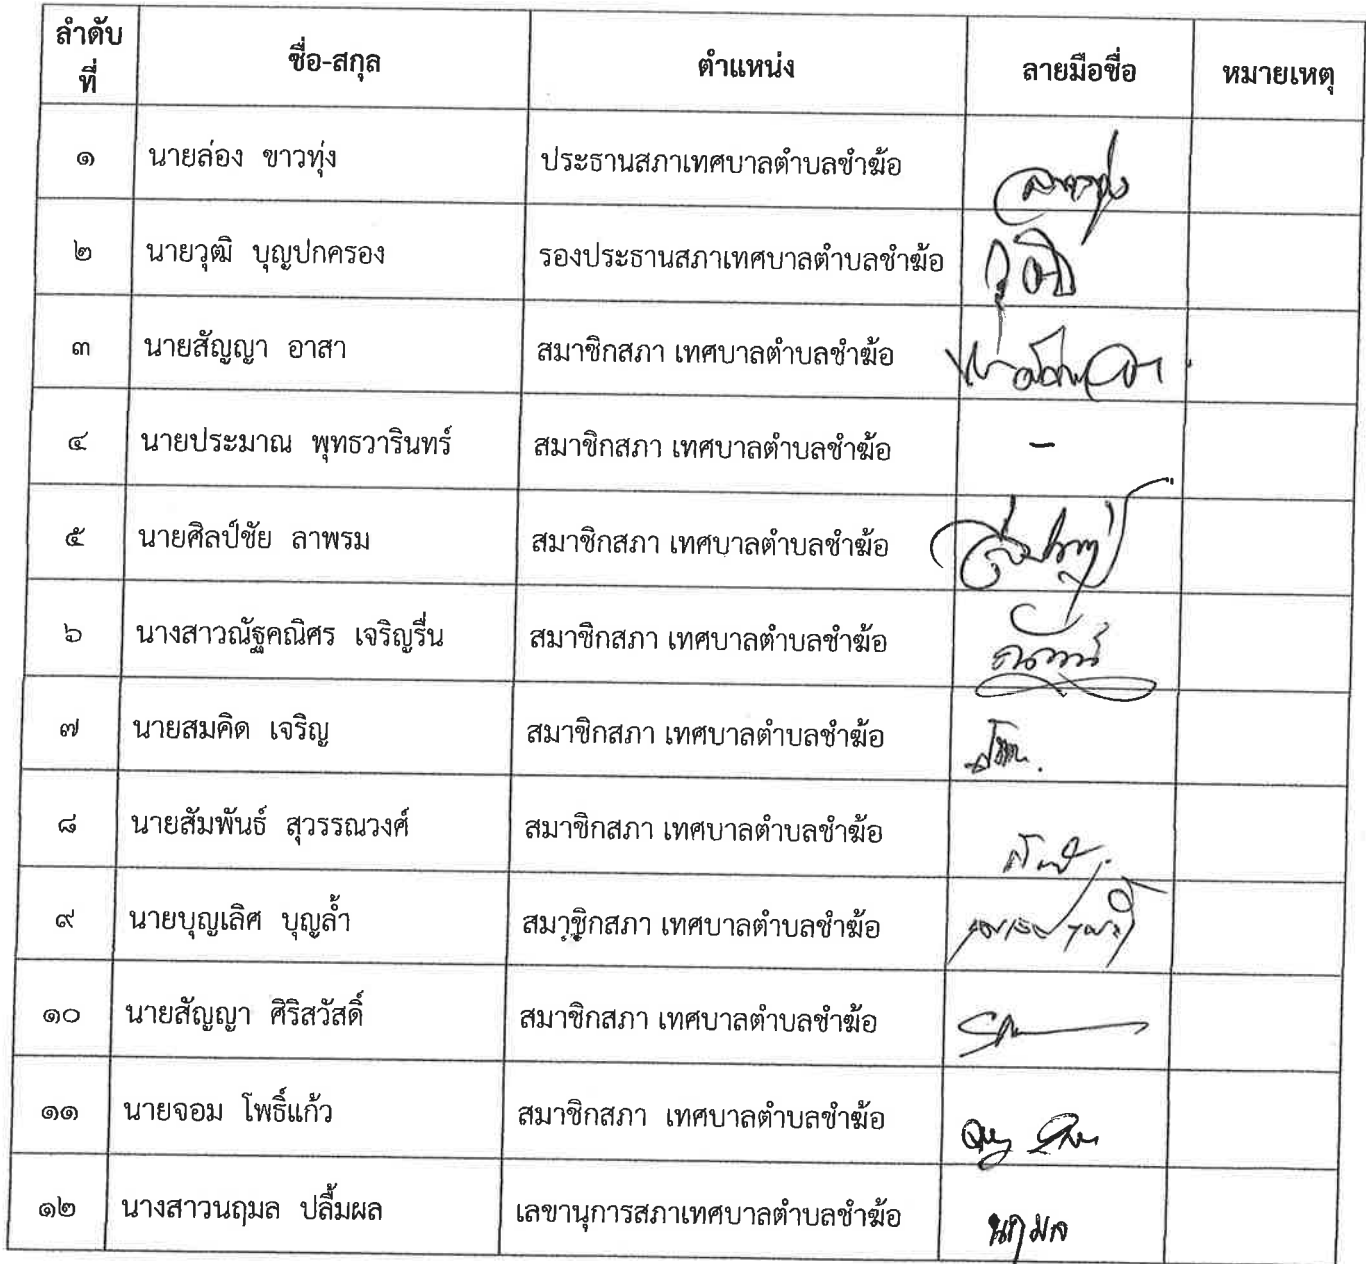 ลำดับที่ ชื่อ-สกุล ตำแหน่ง ลายมือชื่อ หมายเหตุ
๑ นายล่อง ขาวทุ่ง ประธานสภาเทศบาลตำบลชำฆ้อ
๒ นายวุฒิ บุญปกครอง รองประธานสภาเทศบาลตำบลชำฆ้อ วุฒิ
๓ นายสัญญา อาสา สมาชิกสภา เทศบาลตำบลชำฆ้อ
๔ นายประมาณ พุทธวารินทร์ สมาชิกสภา เทศบาลตำบลชำฆ้อ -
๕ นายศิลป์ชัย ลาพรม สมาชิกสภา เทศบาลตำบลชำฆ้อ
๖ นางสาวณัฐคณิศร เจริญรื่น สมาชิกสภา เทศบาลตำบลชำฆ้อ
๗ นายสมคิด เจริญ สมาชิกสภา เทศบาลตำบลชำฆ้อ
๘ นายสัมพันธ์ สุวรรณวงศ์ สมาชิกสภา เทศบาลตำบลชำฆ้อ
๙ นายบุญเลิศ บุญล้ำ สมาชิกสภา เทศบาลตำบลชำฆ้อ
๑๐ นายสัญญา ศิริสวัสดิ์ สมาชิกสภา เทศบาลตำบลชำฆ้อ
๑๑ นายจอม โพธิ์แก้ว สมาชิกสภา เทศบาลตำบลชำฆ้อ
๑๒ นางสาวนฤมล ปลื้มผล เลขานุการสภาเทศบาลตำบลชำฆ้อ นฤมล